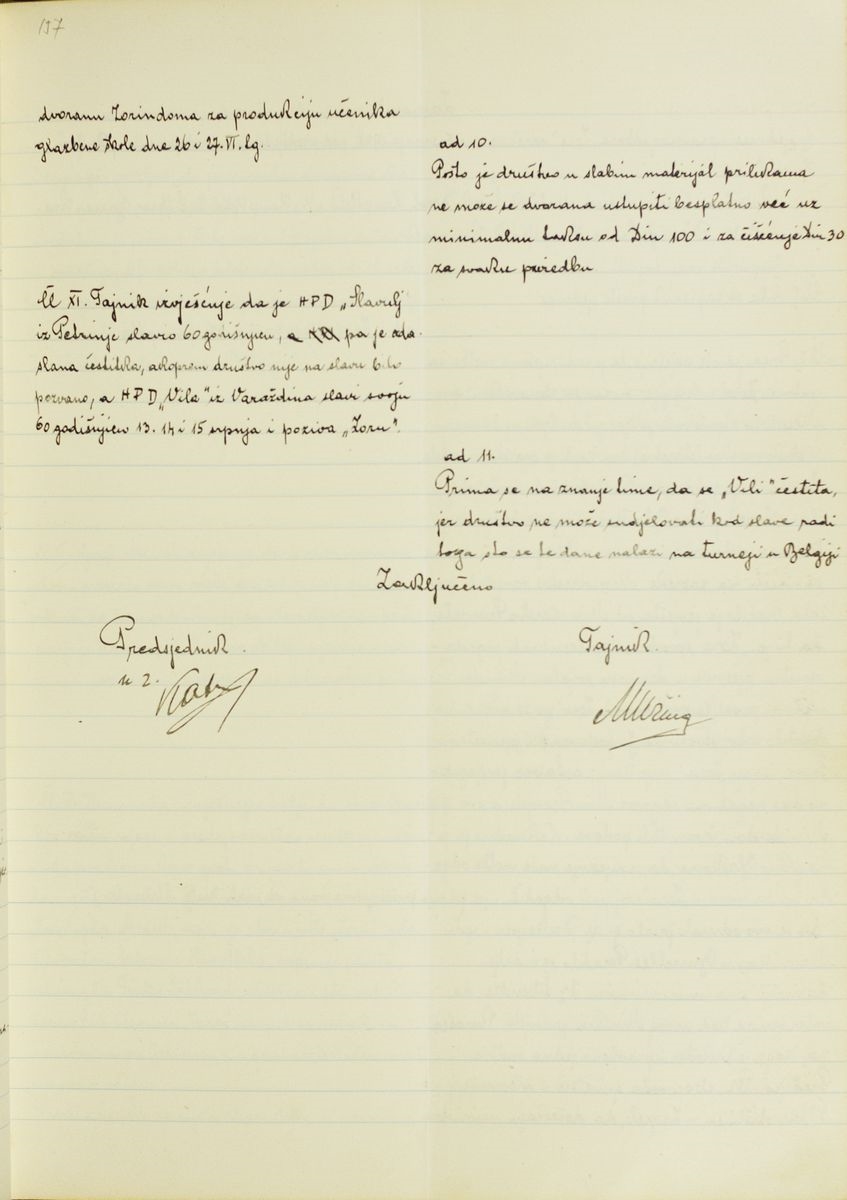 197
dvoranu Zorindoma za produkciju učenika
glazbene škole dne 26 i 27. VI. lg.
ad 10.
Pošto je društvo u slabim materijal prilikama
ne može se dvorana ustupiti besplatno već uz
minimalnu taksu od Din 100 i za čišćenje Din 30
za svaku priredbu
XI. Tajnik izvješćuje da je HPD „Slavulj
iz Petrinje slavio 60 godišnjicu, pa je oda
slana čestitka, akoprem društvo nije na slavu
pozvano, a HPD „Vila" iz Varaždina slavi svoju
60 godišnjicu 13. 14 i 15 srpnja i poziva „Zoru".
ad 11.
Prima se na znanje time, da se „Vili" čestita,
jer društvo ne može sudjelovati kod slave radi
toga što se te dane nalazi na turneji u Belgiji
Zaključeno
Predsjednik.
Tajnik.